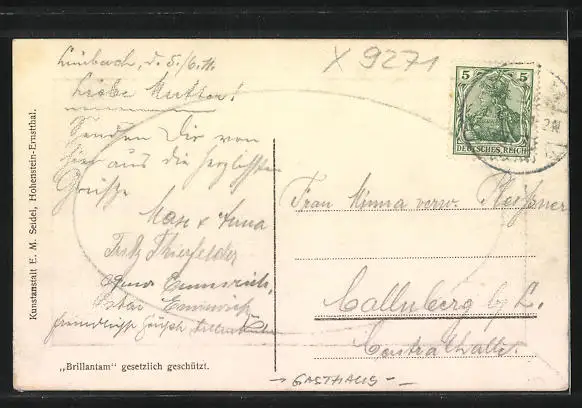 Limbach, d. 5./6.11.
Liebe Mutter!
Senden Dir von
hier aus die herzlichsten
Grüße
Max & Anna
Fritz Thierfelder
Emmrich,
Emmrich
X 9271
5 5
DEUTSCHES REICH
Frau Minna verw. Pleißner
Callnberg b/L.
Centralhalle.
GASTHAUS
Kunstanstalt E. M. Seidel, Hohenstein-Ernstthal.
„Brillantam" gesetzlich geschützt.